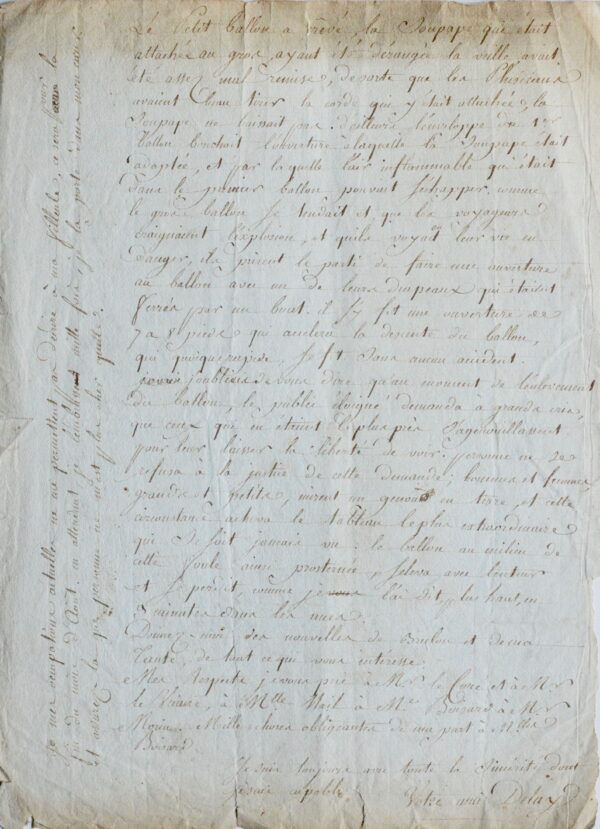 Le Petit ballon a crevé, la Soupape qui était
attachée au gros, ayant été dérangée la veille, avait
été assez mal remise, de sorte que les Phisiciens
avaient beau tirer la corde qui y était attachée, la
Soupape ne baissait pas. d'ailleurs l'enveloppe du 1er
Ballon bouchait l'ouverture a laquelle la Soupape était
adaptée, et par laquelle l'air inflammable qui était
dans le premier ballon pouvait s'échapper. comme
le gros ballon se tendait et que les voyageurs
craignaient l'explosion, et qu'ils voyaient leur vie en
danger, ils prirent le parti de faire une ouverture
au ballon avec un de leurs drapeaux qui étaient
ferrés par un bout. il s'y fit une ouverture de
7 a 8 pieds qui accelera la descente du ballon,
qui quoique rapide, se fit sans aucun accident.
j'oubliais de vous dire qu'au moment de l'enlevement
du ballon, le public éloigné demanda à grands cris,
que ceux qui en etaient le plus près s'agenouillassent
pour leur laisser la liberté de voir. personne ne se
refusa à la justice de cette demande; hommes et femmes
grands et petits, mirent un genouil en terre, et cette
circonstance acheva le tableau le plus extraordinaire
qui se soit jamais vu: le ballon au milieu de
cette foule ainsi prosternée, s'eleva avec lenteur
et se perdit, comme je l'ai dit, plus haut, en
3 minutes dans les nues.
Donnez-moi des nouvelles de et de ma
Tante, de tout ce qui vous interesse.
Mes respects je vous prie à Mr le Curé et à Mr
le Vicaire, à Mlle à Mr à Mr
Morin. Mille choses obligeantes de ma part à Mlles
Je suis toujours avec toute la Sincérité dont
je suis capable Votre ami Delay
Si mes occupations actuelles ne me permettent pas d'écrire à ma filleule, ce sera pour la
fin du mois d'Aout. en attendant je l'embrasse mille fois, je la porte dans mon cœur
et assurez la que personne ne m'est plus cher qu'elle.